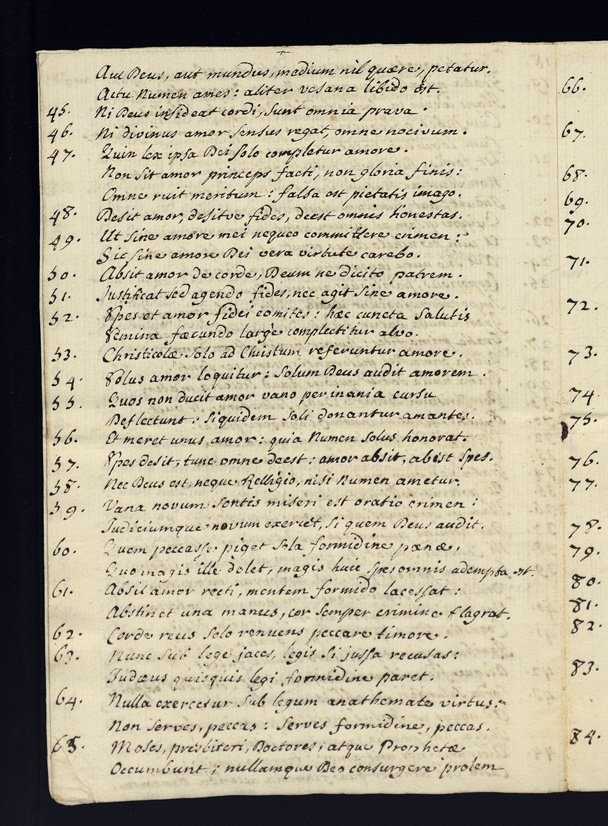 Aut Deus, aut mundus, medium nil quære, petatur.
Actu Numen ames: aliter vesana libido est.
45. Ni Deus insideat cordi, sunt omnia prava.
46. Ni divinus amor sensus regat, omne nocivum.
47. Quin lex ipsa Dei solo completur amore.
Non sit amor princeps facti, non gloria finis:
Omne ruit meritum: falsa est pietatis imago.
48. Desit amor, desitve fides, deest omnis honestas.
49. Ut sine amore mei nequeo committere crimen:
Sic sine amore Dei vera virtute carebo.
50. Absit amor de corde, Deum ne dicito patrem.
51. Justificat sed agendo fides, nec agit sine amore.
52. Spes et amor fidei comites: hæc cuncta salutis
Semina fæcundo large complectitur alvo.
53. Christicolæ solo ad Christum referuntur amore.
54. Solus amor loquitur: solum Deus audit amorem.
55. Quos non ducit amor vano per inania cursu
Deflectunt: siquidem soli donantur amantes.
56. Et meret unus, amor: quia Numen solus honorat.
57. Spes desit, tunc omne deest: amor absit, abest spes.
58. Nec Deus est, neque Relligio, nisi Numen ametur.
59. Vana novum sontis miseri est oratio crimen:
Judiciumque novum exercet, si quem Deus audit.
60. Quem peccasse piget sola formidine pænæ,
Quo magis ille dolet, magis huic spes omnis adempta est.
61. Absit amor recti, mentem formido lacessat:
Abstinet una manus, cor semper crimine flagrat.
62. Corde reus solo renuens peccare timore.
63. Nunc sub lege jaces, legis si jussa recusas:
Judæus quisquis legi formidine paret.
64. Nulla exercetur sub legum anathemate virtus:
Non serves, peccas: serves formidine, peccas.
65. Moses, presbiteri, Doctores, atque Prophetæ
Occumbunt; nullamque Deo consurgere prolem
66.
67.
68.
69.
70.
71.
72.
73.
74
75.
76.
77.
78.
79.
80.
81.
82.
83.
84.